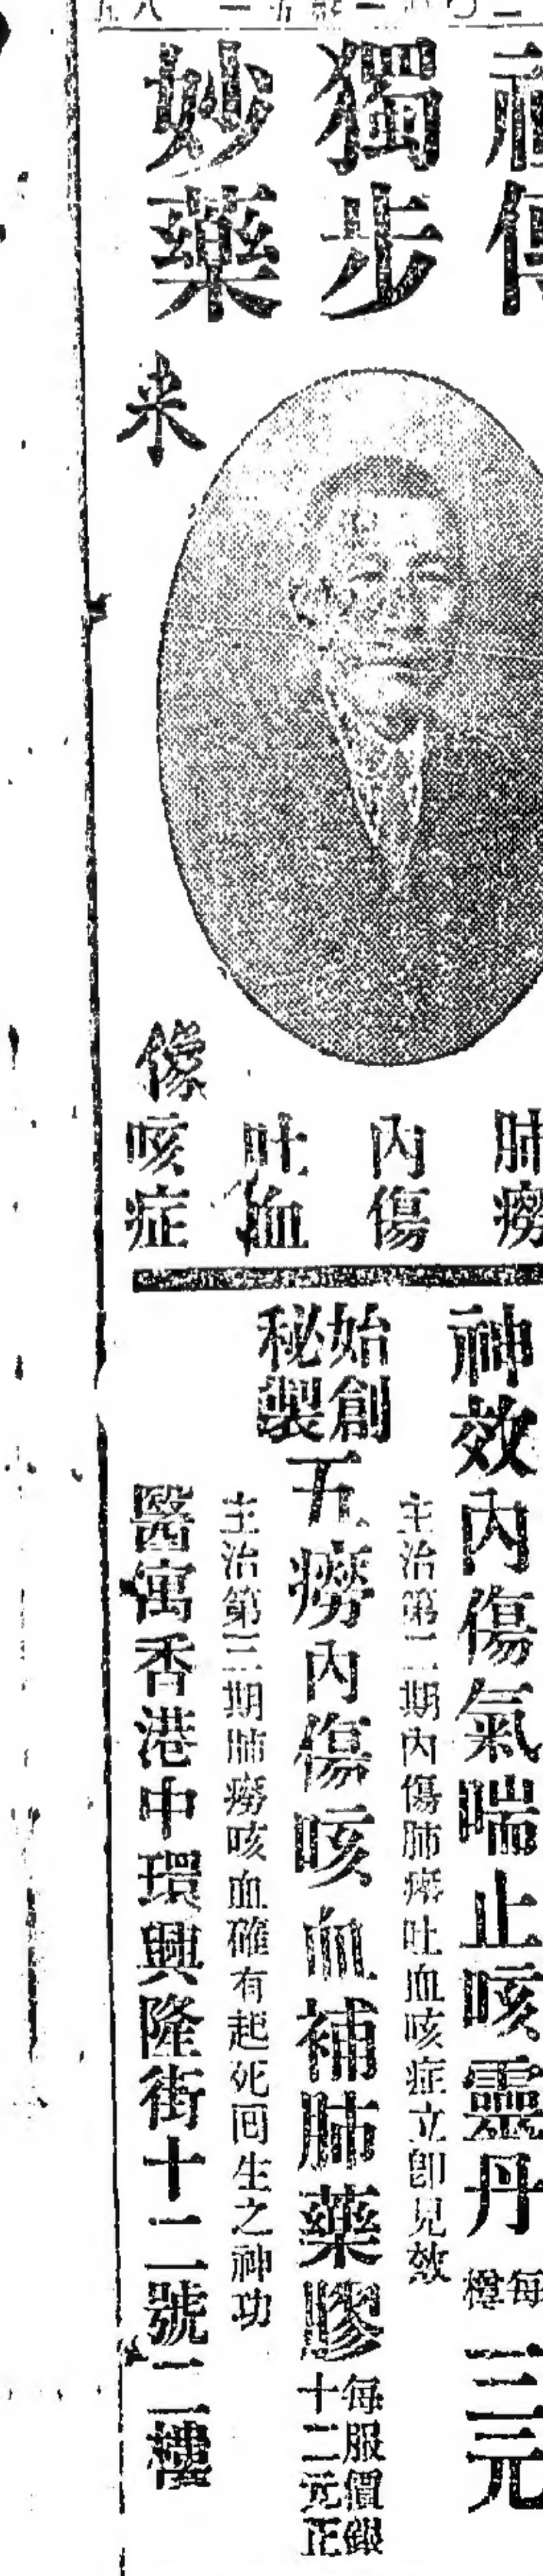 傳
獨步
妙藥
来
像
肺癆
內傷
吐血
咳症
神效內傷氣喘止咳靈丹
每樽
三元
主治第二期內傷肺癆吐血咳症立即見效
始創
秘製
五癆內傷咳血補肺藥膠
每服價銀
十二元正
主治第三期肺癆咳血確有起死回生之神功
醫寓香港中環興隆街十二號二樓